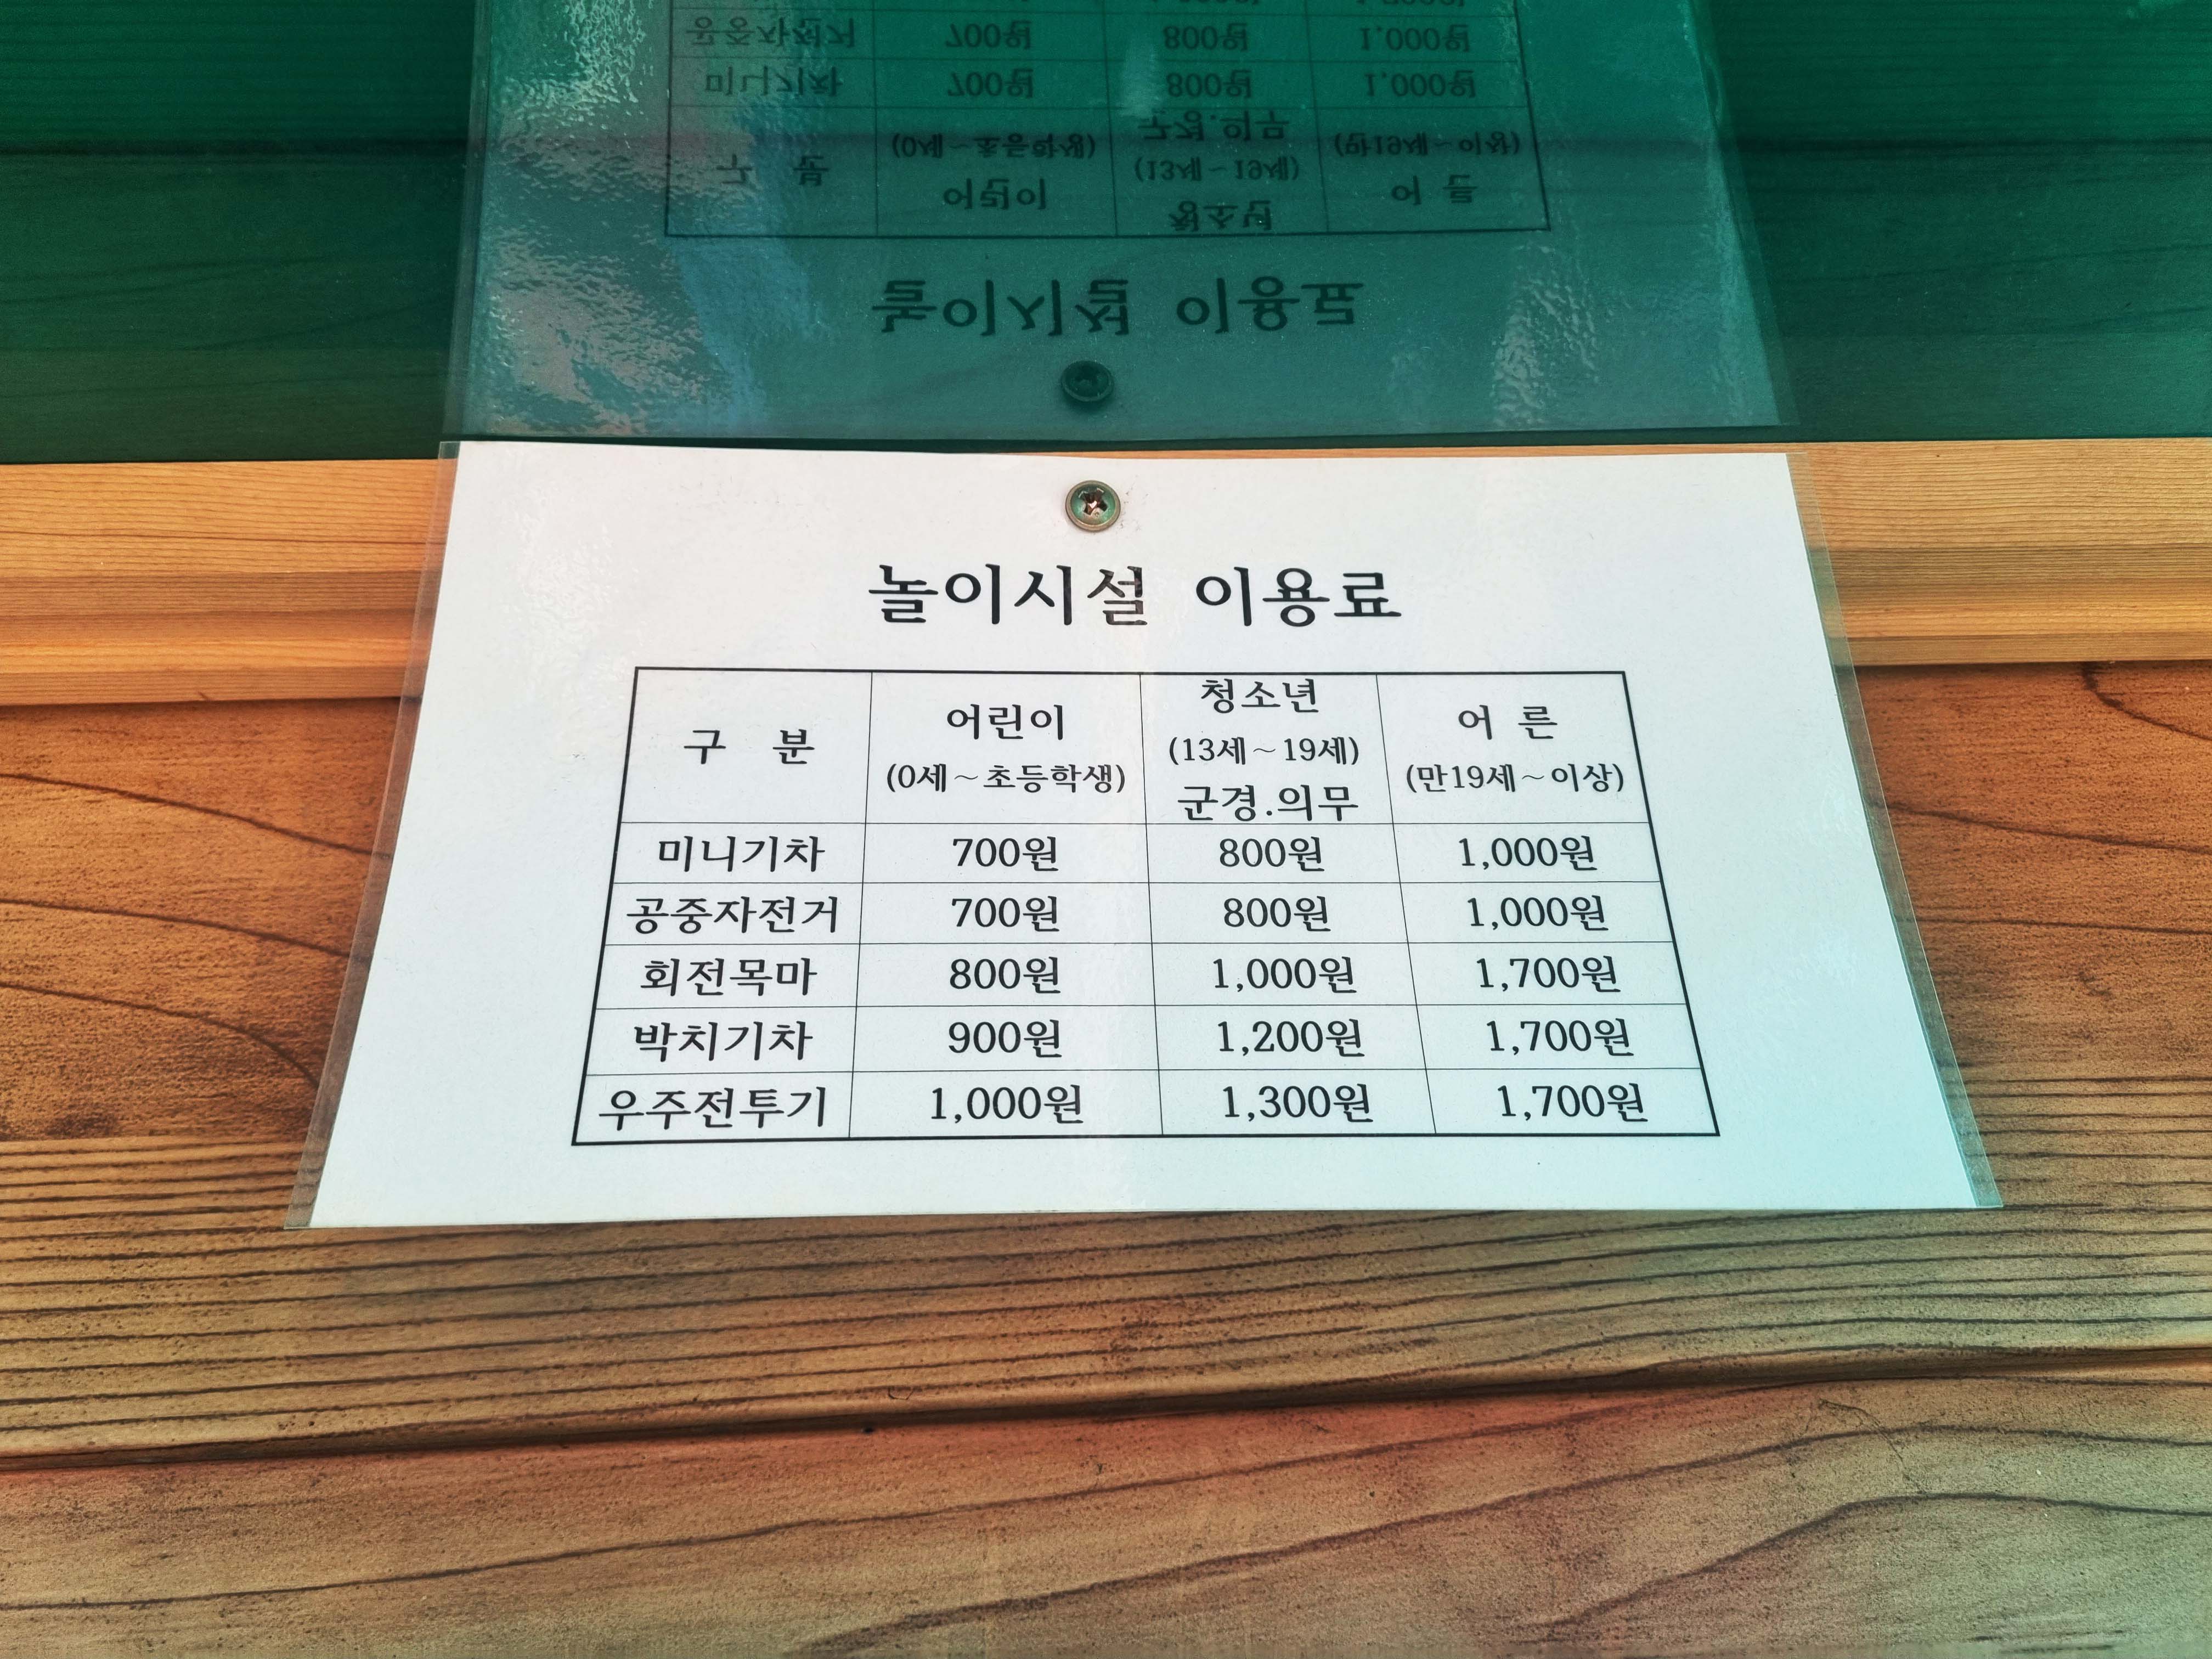 놀이시설 이용료
구 분 어린이 (0세~초등학생) 청소년 (13세~19세) 군경.의무 어 른 (만19세~이상)
미니기차 700원 800원 1,000원
공중자전거 700원 800원 1,000원
회전목마 800원 1,000원 1,700원
박치기차 900원 1,200원 1,700원
우주전투기 1,000원 1,300원 1,700원